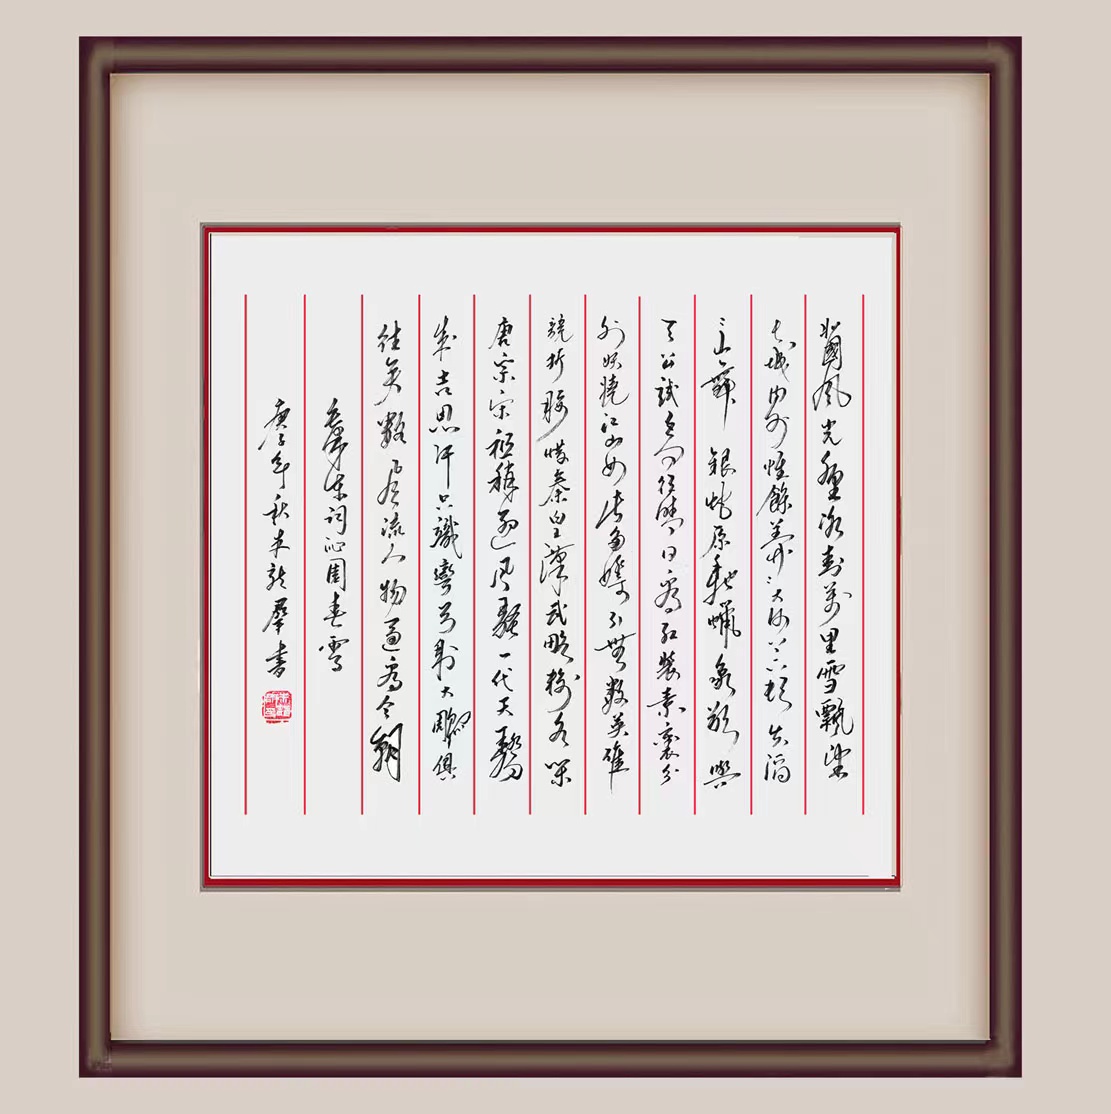 北國風光千里冰封萬里雪飄望
長城內外惟餘莽々大河上下頓失滔
々山舞銀蛇原馳蠟象欲與
天公試比高須晴日看紅裝素裹分
外妖嬈江山如此多嬌引無數英雄
競折腰惜秦皇漢武略輸文采
唐宗宋祖稍遜風騷一代天驕
成吉思汗只識彎弓射大雕俱
往矣數風流人物還看今朝
毛澤東詞沁園春雪
庚子年秋朱龍羣書